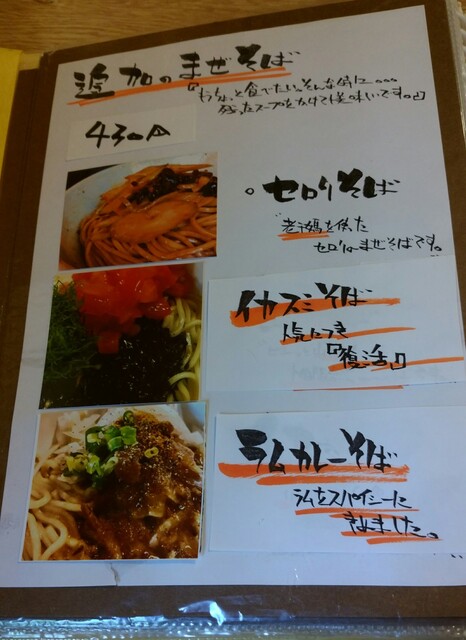 追加のまぜそば
『もうちょっと食べたい。そんな時に。。。
残ったスープをかけても美味いです。』
430円
。セロリそば
老干媽を使った
セロリのまぜそばです。
イカスミそば
人気につき
『復活』
ラムカレーそば
ラムをスパイシーに
きめました。